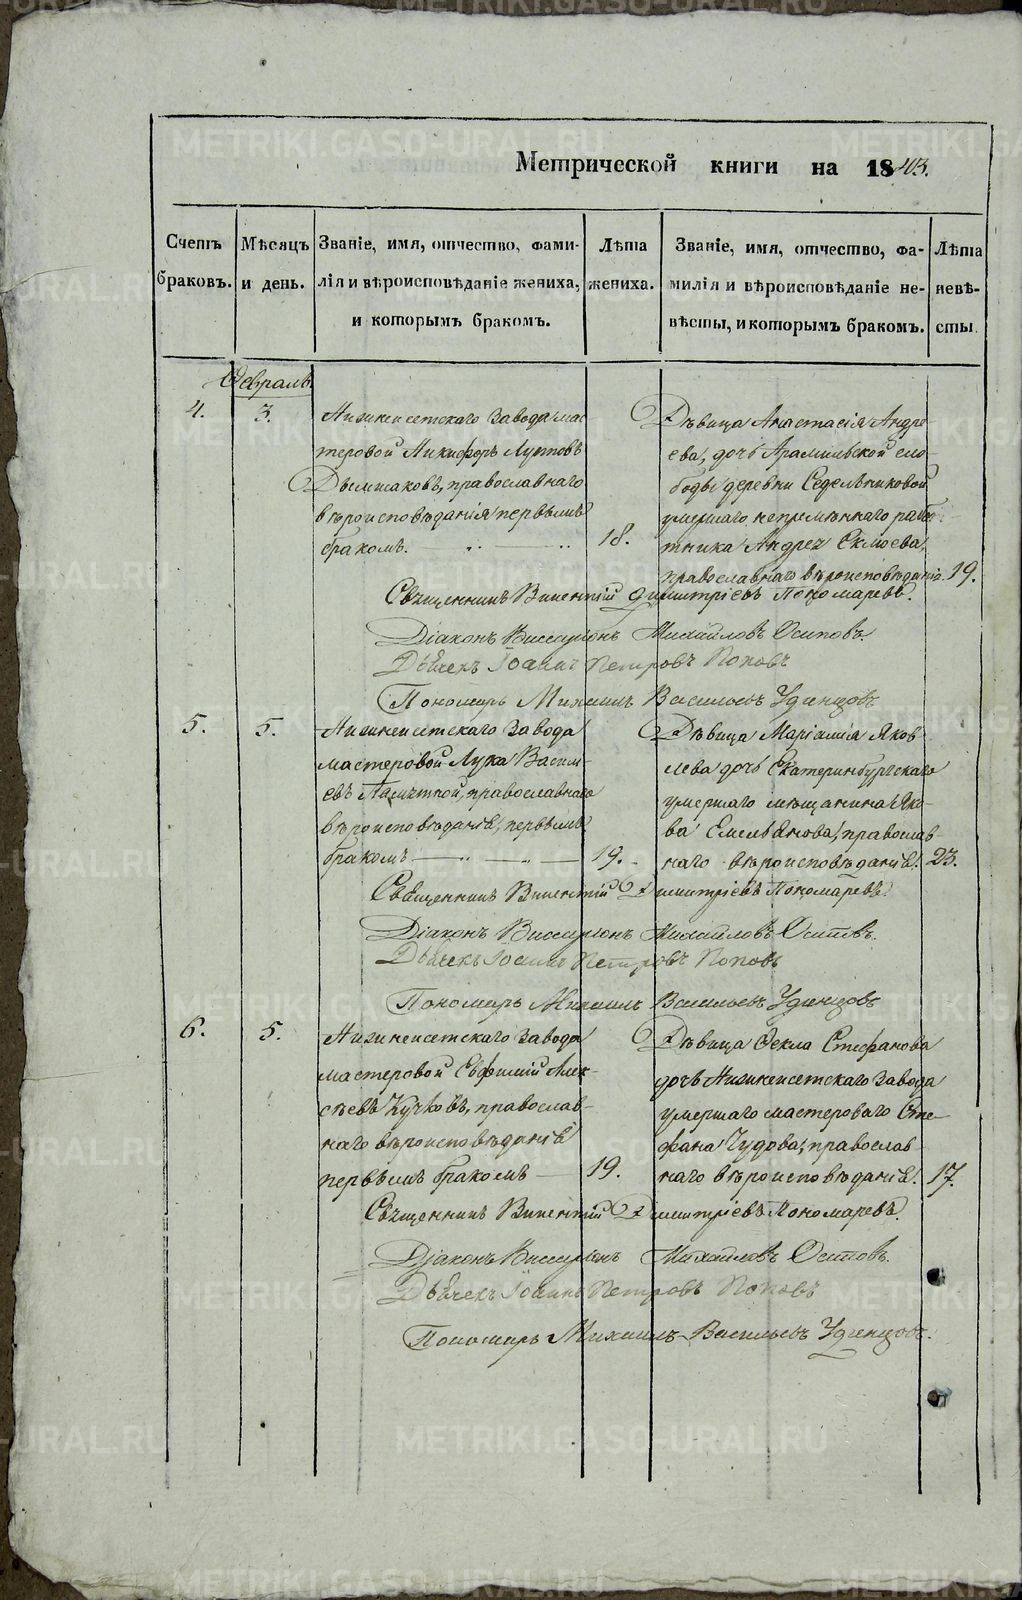 Метрической книги на 1843.
Счетъ браковъ.
Мѣсяцъ и день.
Званіе, имя, отчество, фами-
лія и вѣроисповѣданіе жениха,
и которымъ бракомъ.
Лѣта жениха.
Званіе, имя, отчество, фа-
милія и вѣроисповѣданіе не-
вѣсты, и которымъ бракомъ.
Лѣта невѣ-
сты.
Февраль.
4. 3.
Нижнеисетскаго Завода мас
теровой Никифоръ
православнаго
вѣроисповѣданія первымъ
бракомъ. 18.
Дѣвица Анастасія Андре
ева, дочь Арамильской сло-
боды деревни Седельниковой
умершаго непремѣннаго рабо
тника Андрея
православнаго вѣроисповѣданія. 19.
Священникъ Викентій Димитріевъ Пономаревъ.
Діаконъ Виссаріонъ Михайловъ Осиповъ.
Дьячекъ Іоаннъ Петровъ Поповъ
Пономарь Михаилъ Васильевъ Удинцовъ
5. 5.
Нижнеисетскаго Завода
мастеровой Лука Василь-
евъ православнаго
вѣроисповѣданія, первымъ
бракомъ 19.
Дѣвица Маріамна Яков
лева дочь Екатеринбургскаго
умершаго мѣщанина Яко-
ва Емельянова, православ-
наго вѣроисповѣданія. 23.
Священникъ Викентій Димитріевъ Пономаревъ.
Діаконъ Виссаріонъ Михайловъ Осиповъ.
Дьячекъ Іоаннъ Петровъ Поповъ
Пономарь Михаилъ Васильевъ Удинцовъ
6. 5.
Нижнеисетскаго Завода
мастеровой Евфимій Алек-
сѣевъ Кучковъ, православ-
наго вѣроисповѣданія
первымъ бракомъ 19.
Дѣвица Ѳекла Стефанова
дочь Нижнеисетскаго Завода
умершаго мастероваго Сте-
фана Чудова, православ
наго вѣроисповѣданія. 17.
Священникъ Викентій Димитріевъ Пономаревъ.
Діаконъ Виссаріонъ Михайловъ Осиповъ.
Дьячекъ Іоаннъ Петровъ Поповъ
Пономарь Михаилъ Васильевъ Удинцовъ.
METRIKI.GASO-URAL.RU